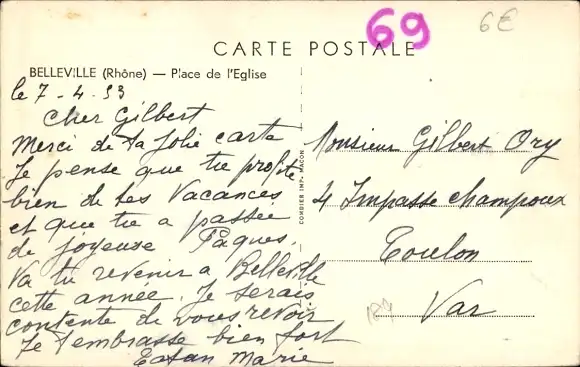 69
6€
CARTE POSTALE
BELLEVILLE (Rhône) — Place de l'Eglise
le 7-4.53
Cher Gilbert
Merci de ta Jolie carte
Je pense que tu profite
bien de tes Vacances
et que tu a passée
de joyeuse Pâques.
Va tu revenir a Belleville
cette année. Je serais
contente de vous revoir
Je t'embrasse bien fort
Marie
COMBIER IMP. MACON
Monsieur Gilbert Ory
4 Impasse Champoux
Toulon
Var